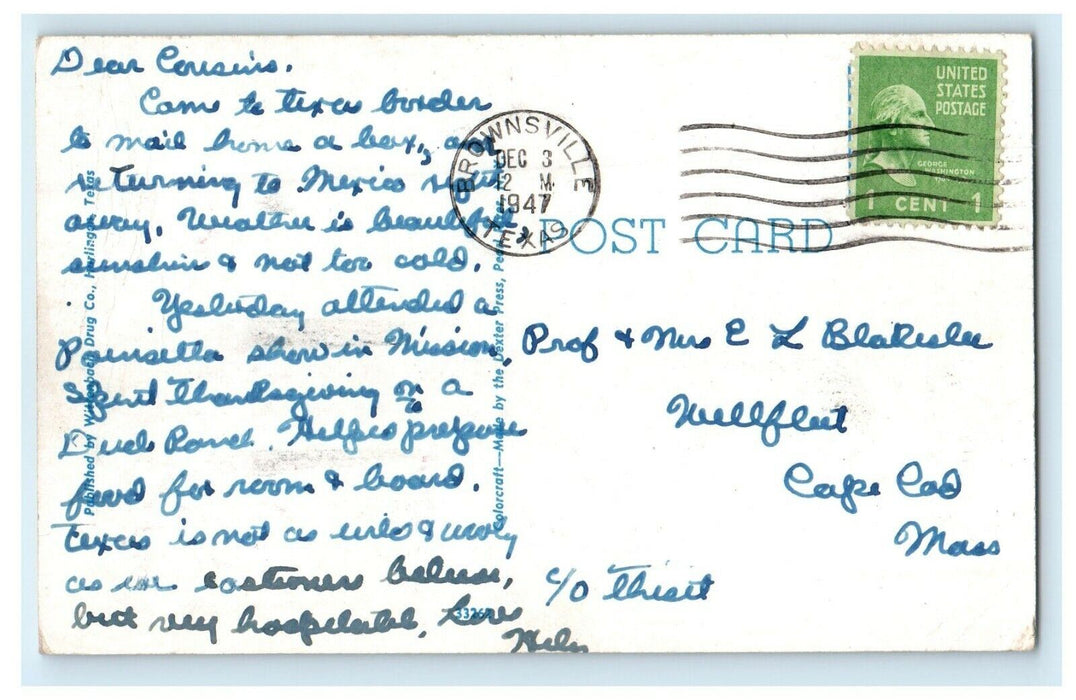 Dear Cousins.
Came to Texas border
to mail home a box, am
returning to Mexico right
away. Weather is beautiful
sunshin & not too cold.
Yesterday attended a
Poinsetta show in Mission,
Spent Thanksgiving on a
Dude Ranch. Helped prepare
food for room & board.
Texas is not as wild & wooly
as we eastoners believe,
but very hospitable. Love
Helen
Published by Wittenbach Drug Co., Harlingen, Texas
Colorcraft—Made by the Dexter Press, Pearl
BROWNSVILLE
DEC 3
12 M
1947
TEXAS
POST CARD
UNITED
STATES
POSTAGE
GEORGE
WASHINGTON
1 CENT 1
Prof & Mrs E L Blakeslee
Wellfleet
Cape Cod
Mass
c/o